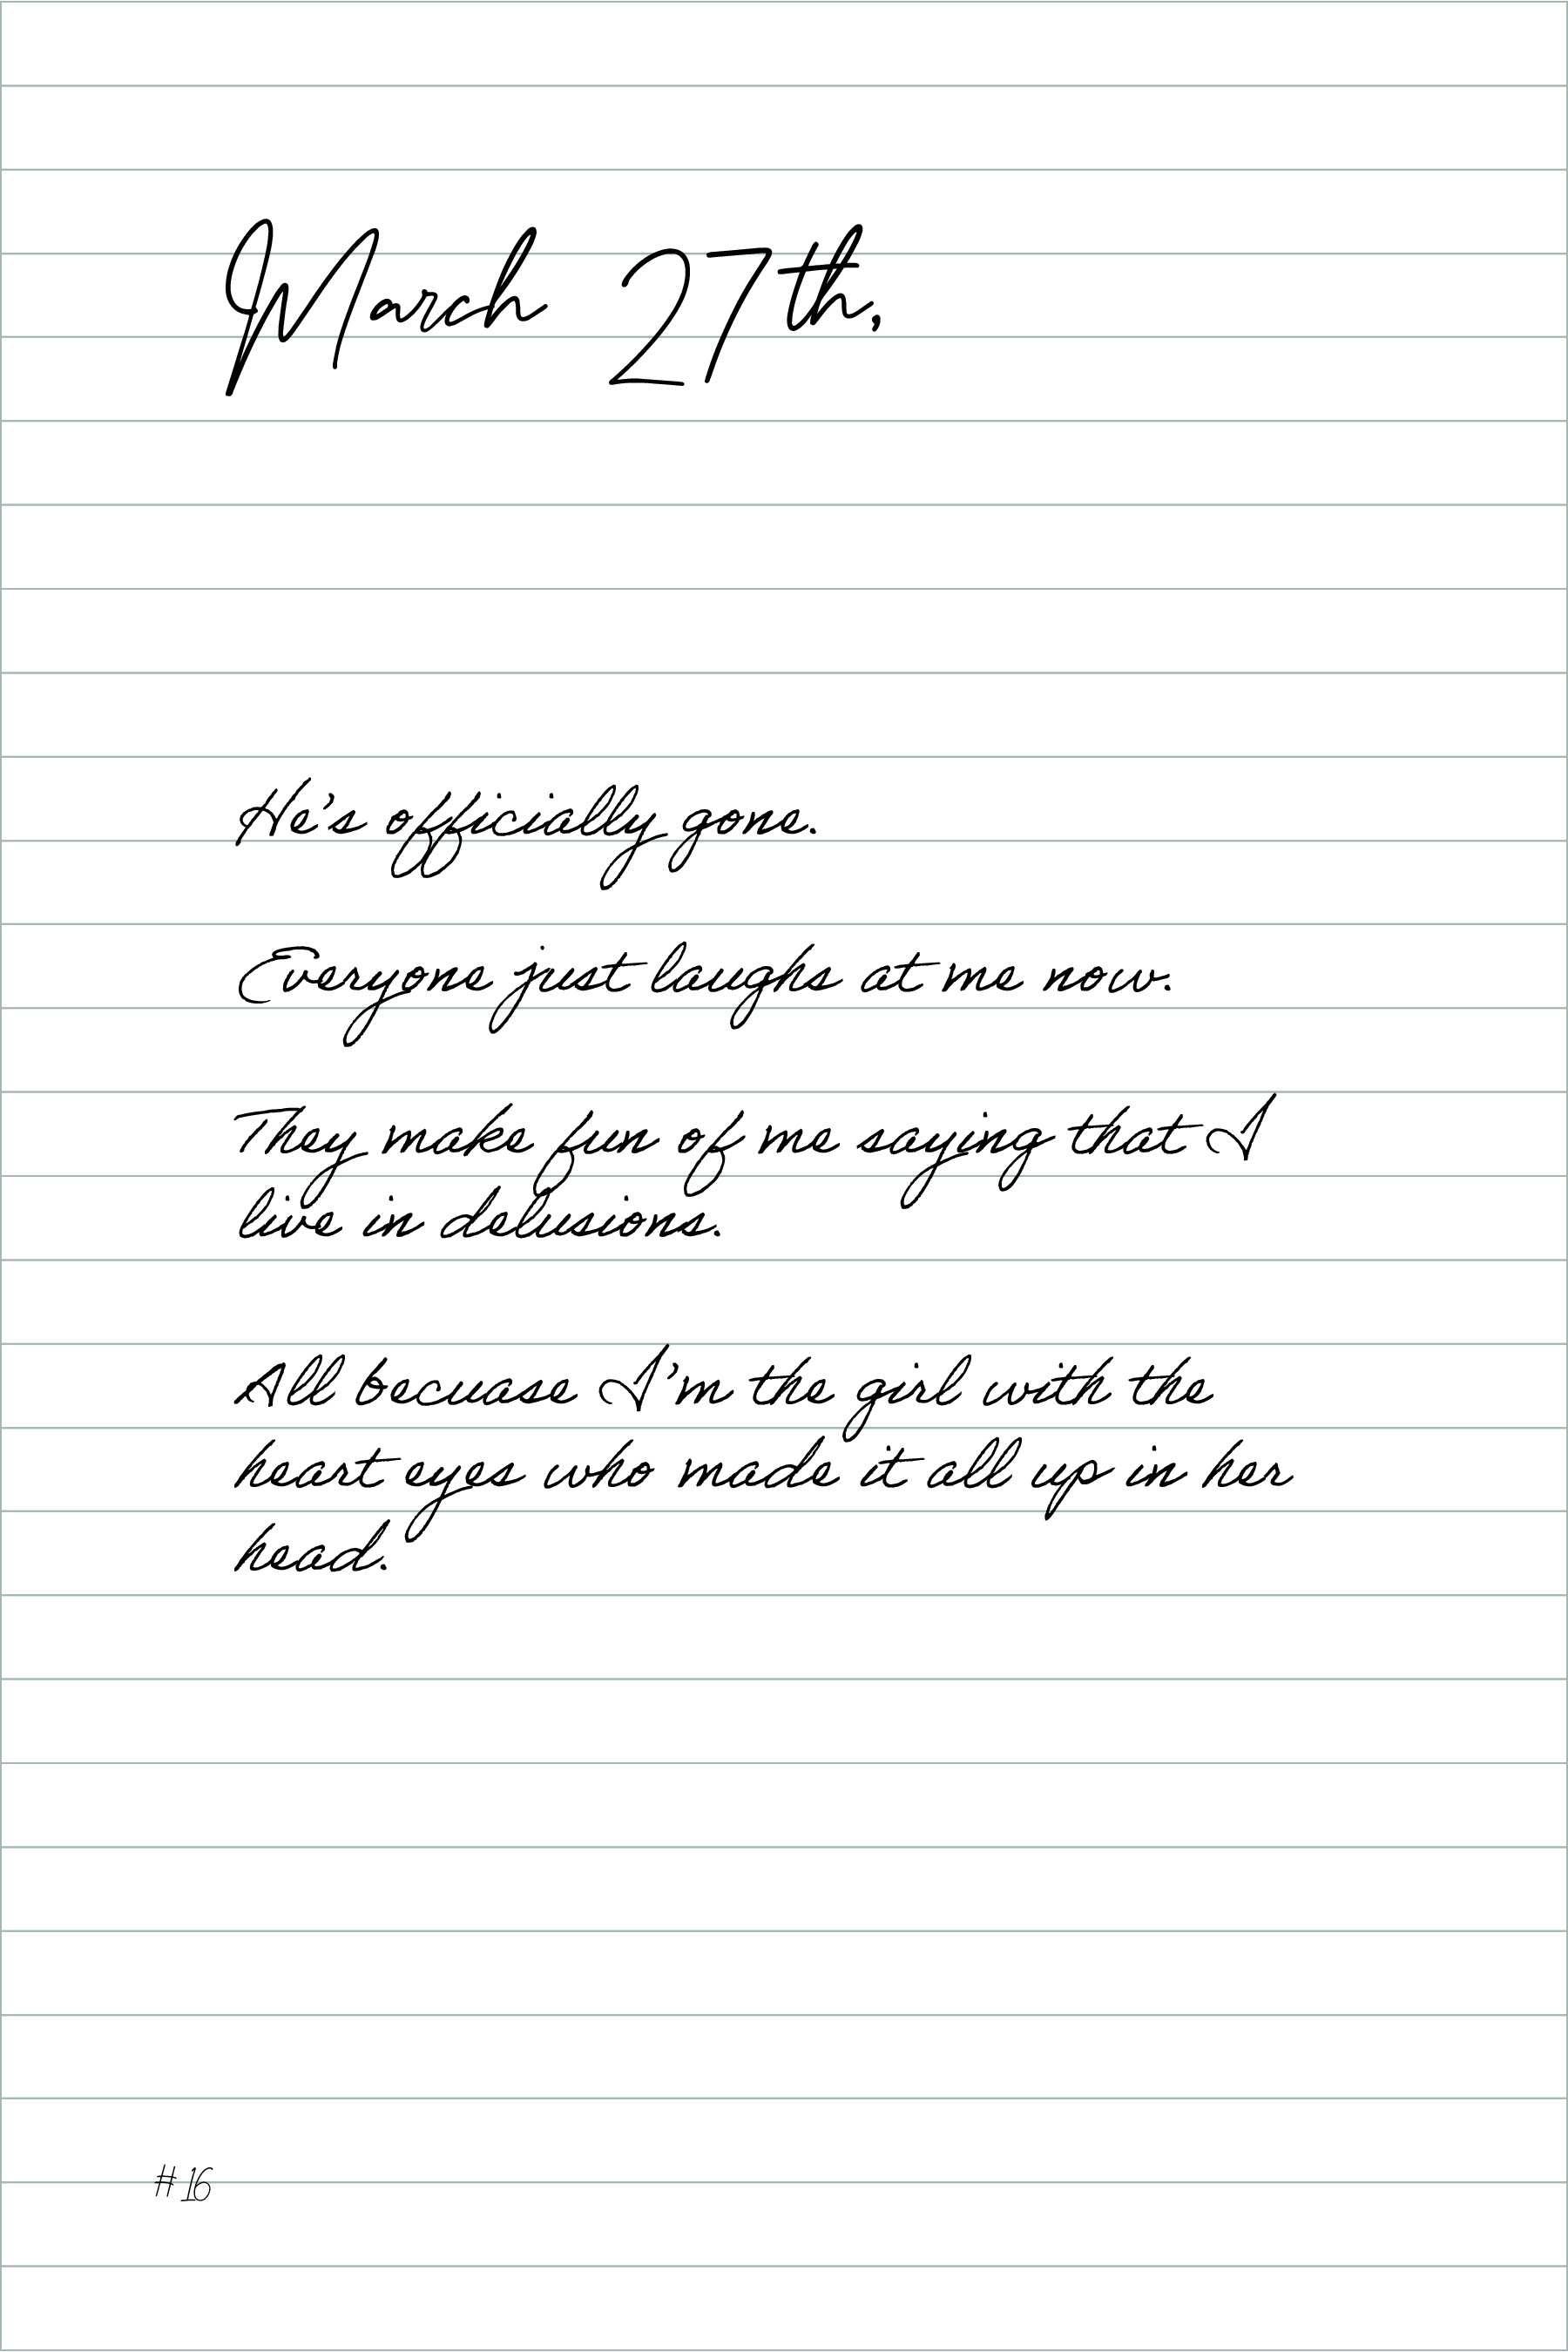 March 27th,
He's officially gone.
Everyone just laughs at me now.
They make fun of me saying that I
live in delusions.
All becuase I'm the girl with the
heart eyes who made it all up in her
head.
#16